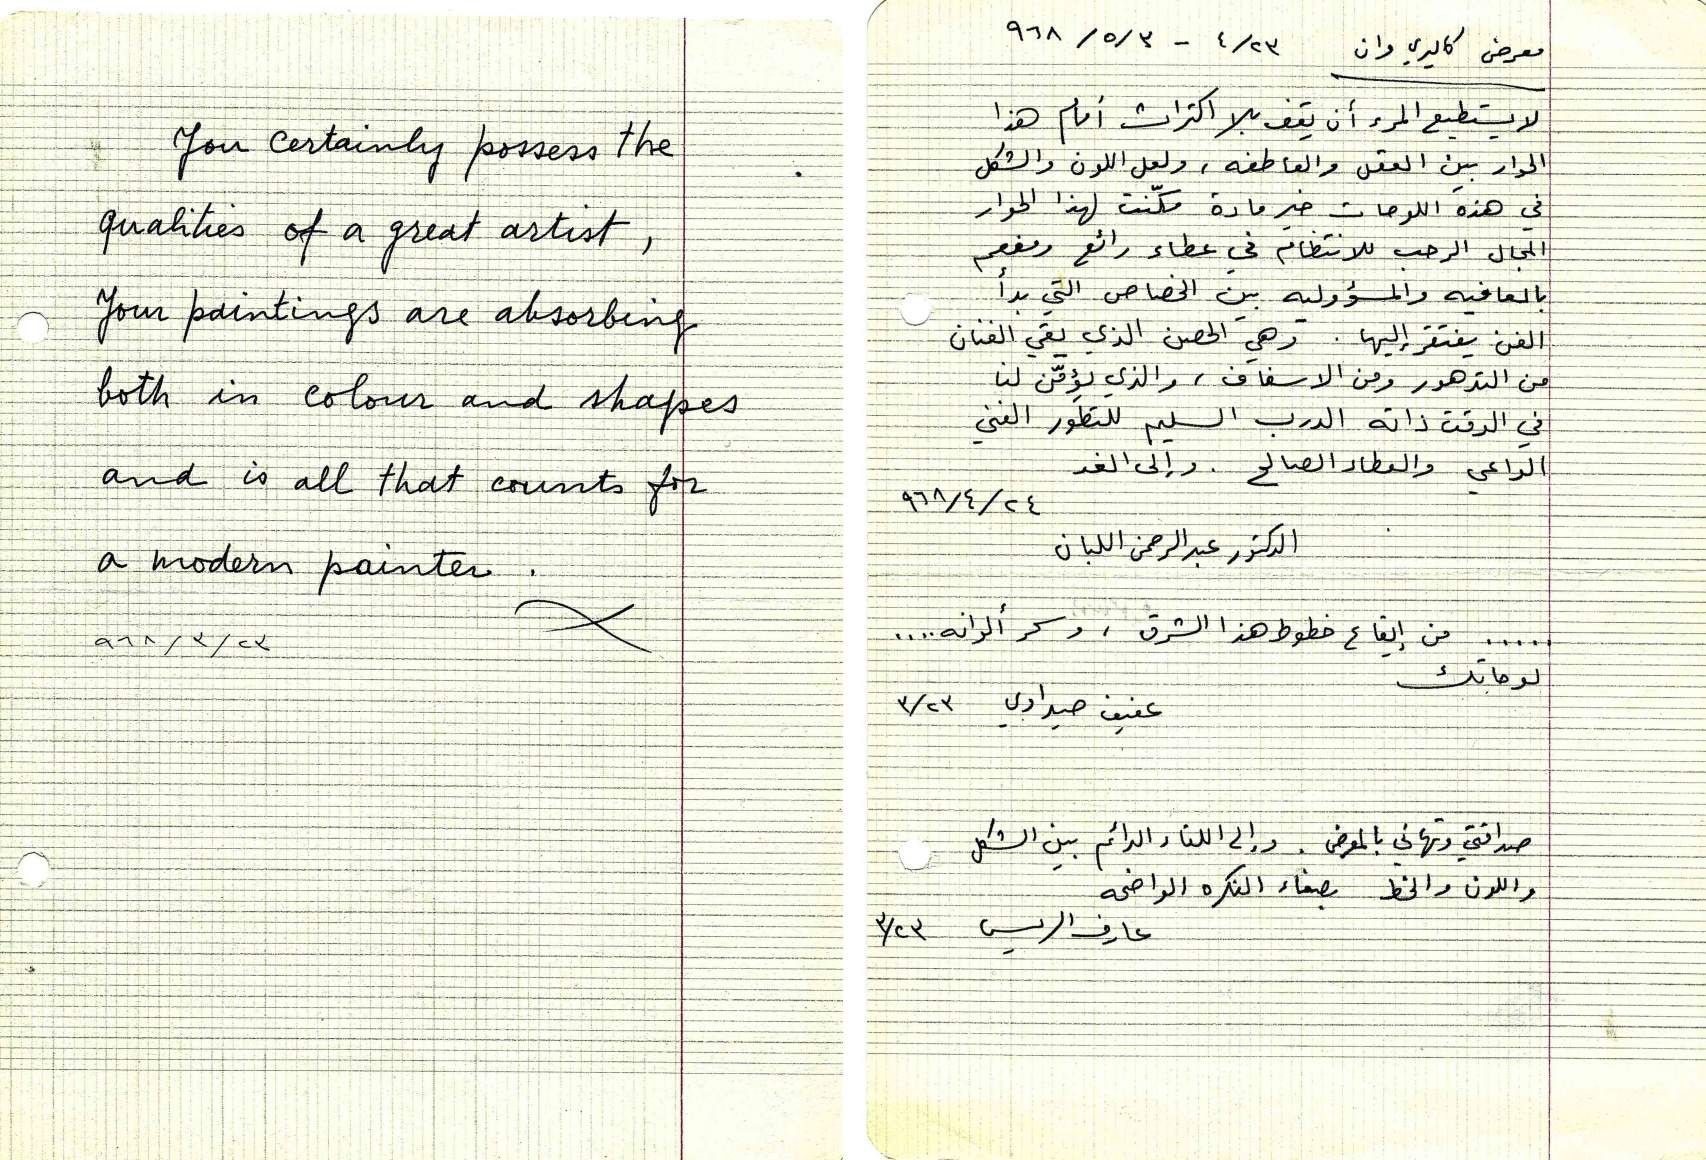 You certainly possess the
qualities of a great artist,
Your paintings are absorbing
both in colour and shapes
and is all that counts for
a modern painter.
٩٦٨/٣/٢٣
معرض كاليري وان ٤/٢٣ - ٥/٣/ ٩٦٨
لا يستطيع المرء أن يقف بلا اكتراث أمام هذا
الحوار بين العقل والعاطفه، ولعل اللون والشكل
في هذه اللوحات خير مادة مكّنت لهذا الحوار
المجال الرحب للانتظام في عطاء رائع ومفعم
بالعافيه والمسؤوليه بين الخصائص التي بدأ
الفن يفتقر إليها. وهي الحصن الذي يقي الفنان
من التدهور ومن الاسفاف، والذي يؤمّن لنا
في الوقت ذاته الدرب السليم للتطور الفني
الواعي والعطاء الصالح. وإلى الغد
٩٦٨/٤/٢٤
الدكتور عبد الرحمن اللبان
..... من إيقاع خطوط هذا الشرق، وسحر ألوانه....
لوحاتك
عفيف صيداوي ٣/٢٣
صداقتي وتهاني بالمعرض. وإلى اللقاء الدائم بين الشكل
واللون والخط بصفاء الفكره الواضحه
عارف الريس ٣/٢٣